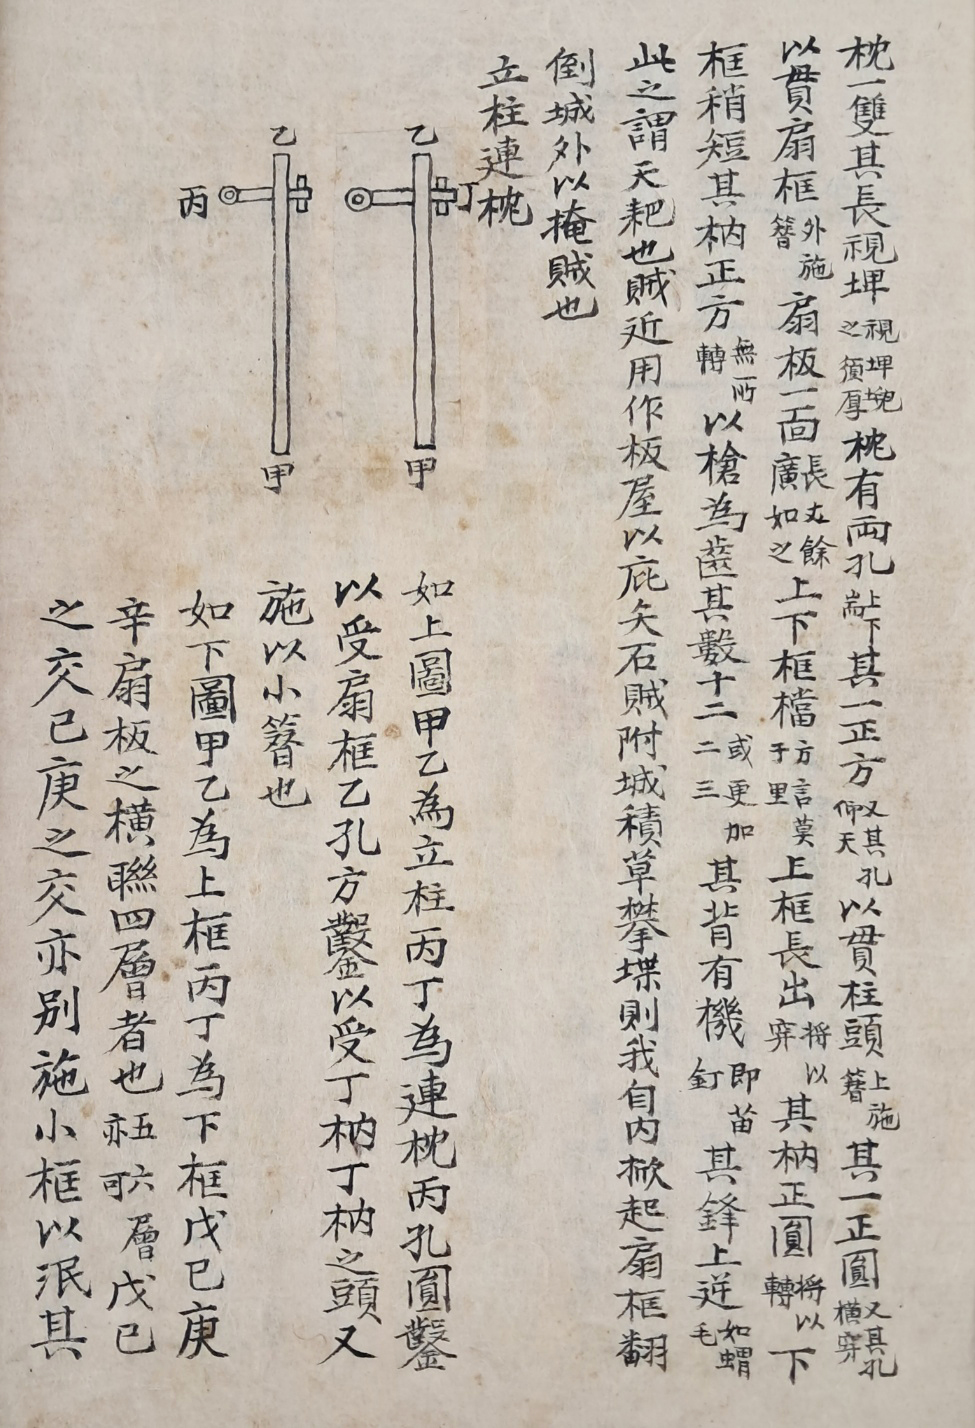 枕一雙其長視埤視埤堄之須厚枕有兩孔上下耑其一正方又其孔仰天以貫柱頭上施簪其一正圓又其孔橫穿
以貫扇框外施簪扇板一面長丈餘廣如之上下框檔方言莫于里上框長出將以穿其枘正圓將以轉下
框稍短其枘正方無所轉以槍為齒其數十二或更加二三其背有機即苗釘其鋒上逆如蝟毛
此之謂天耙也賊近用作板屋以庇矢石賊附城積草攀堞則我自内掀起扇框翻
倒城外以掩賊也
立柱連枕
乙
丁
甲
乙
丙
甲
如上圖甲乙為立柱丙丁為連枕丙孔圓鑿
以受扇框乙孔方鑿以受丁枘丁枘之頭又
施以小簪也
如下圖甲乙為上框丙丁為下框戊己庚
辛扇板之橫聯四層者也五六層亦可戊己
之交己庚之交亦別施小框以泯其